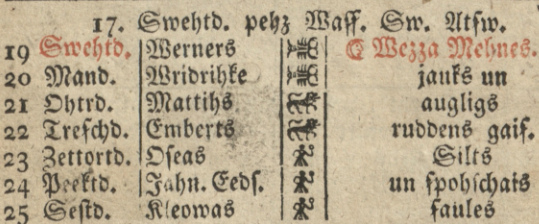 17. Swehtd. pehz Wass. Sw. Atsw.
19 Swehtd. Werners Wezza Mehnes.
20 Mand. Wridrihke jauks un
21 Ohtrd. Mattihs augligs
22 Treschd. Emberts ruddens gais.
23 Zettortd. Oseas Silts
24 Peektd. Jahn. Eeds. un spohschais
25 Sestd. Kleowas saules